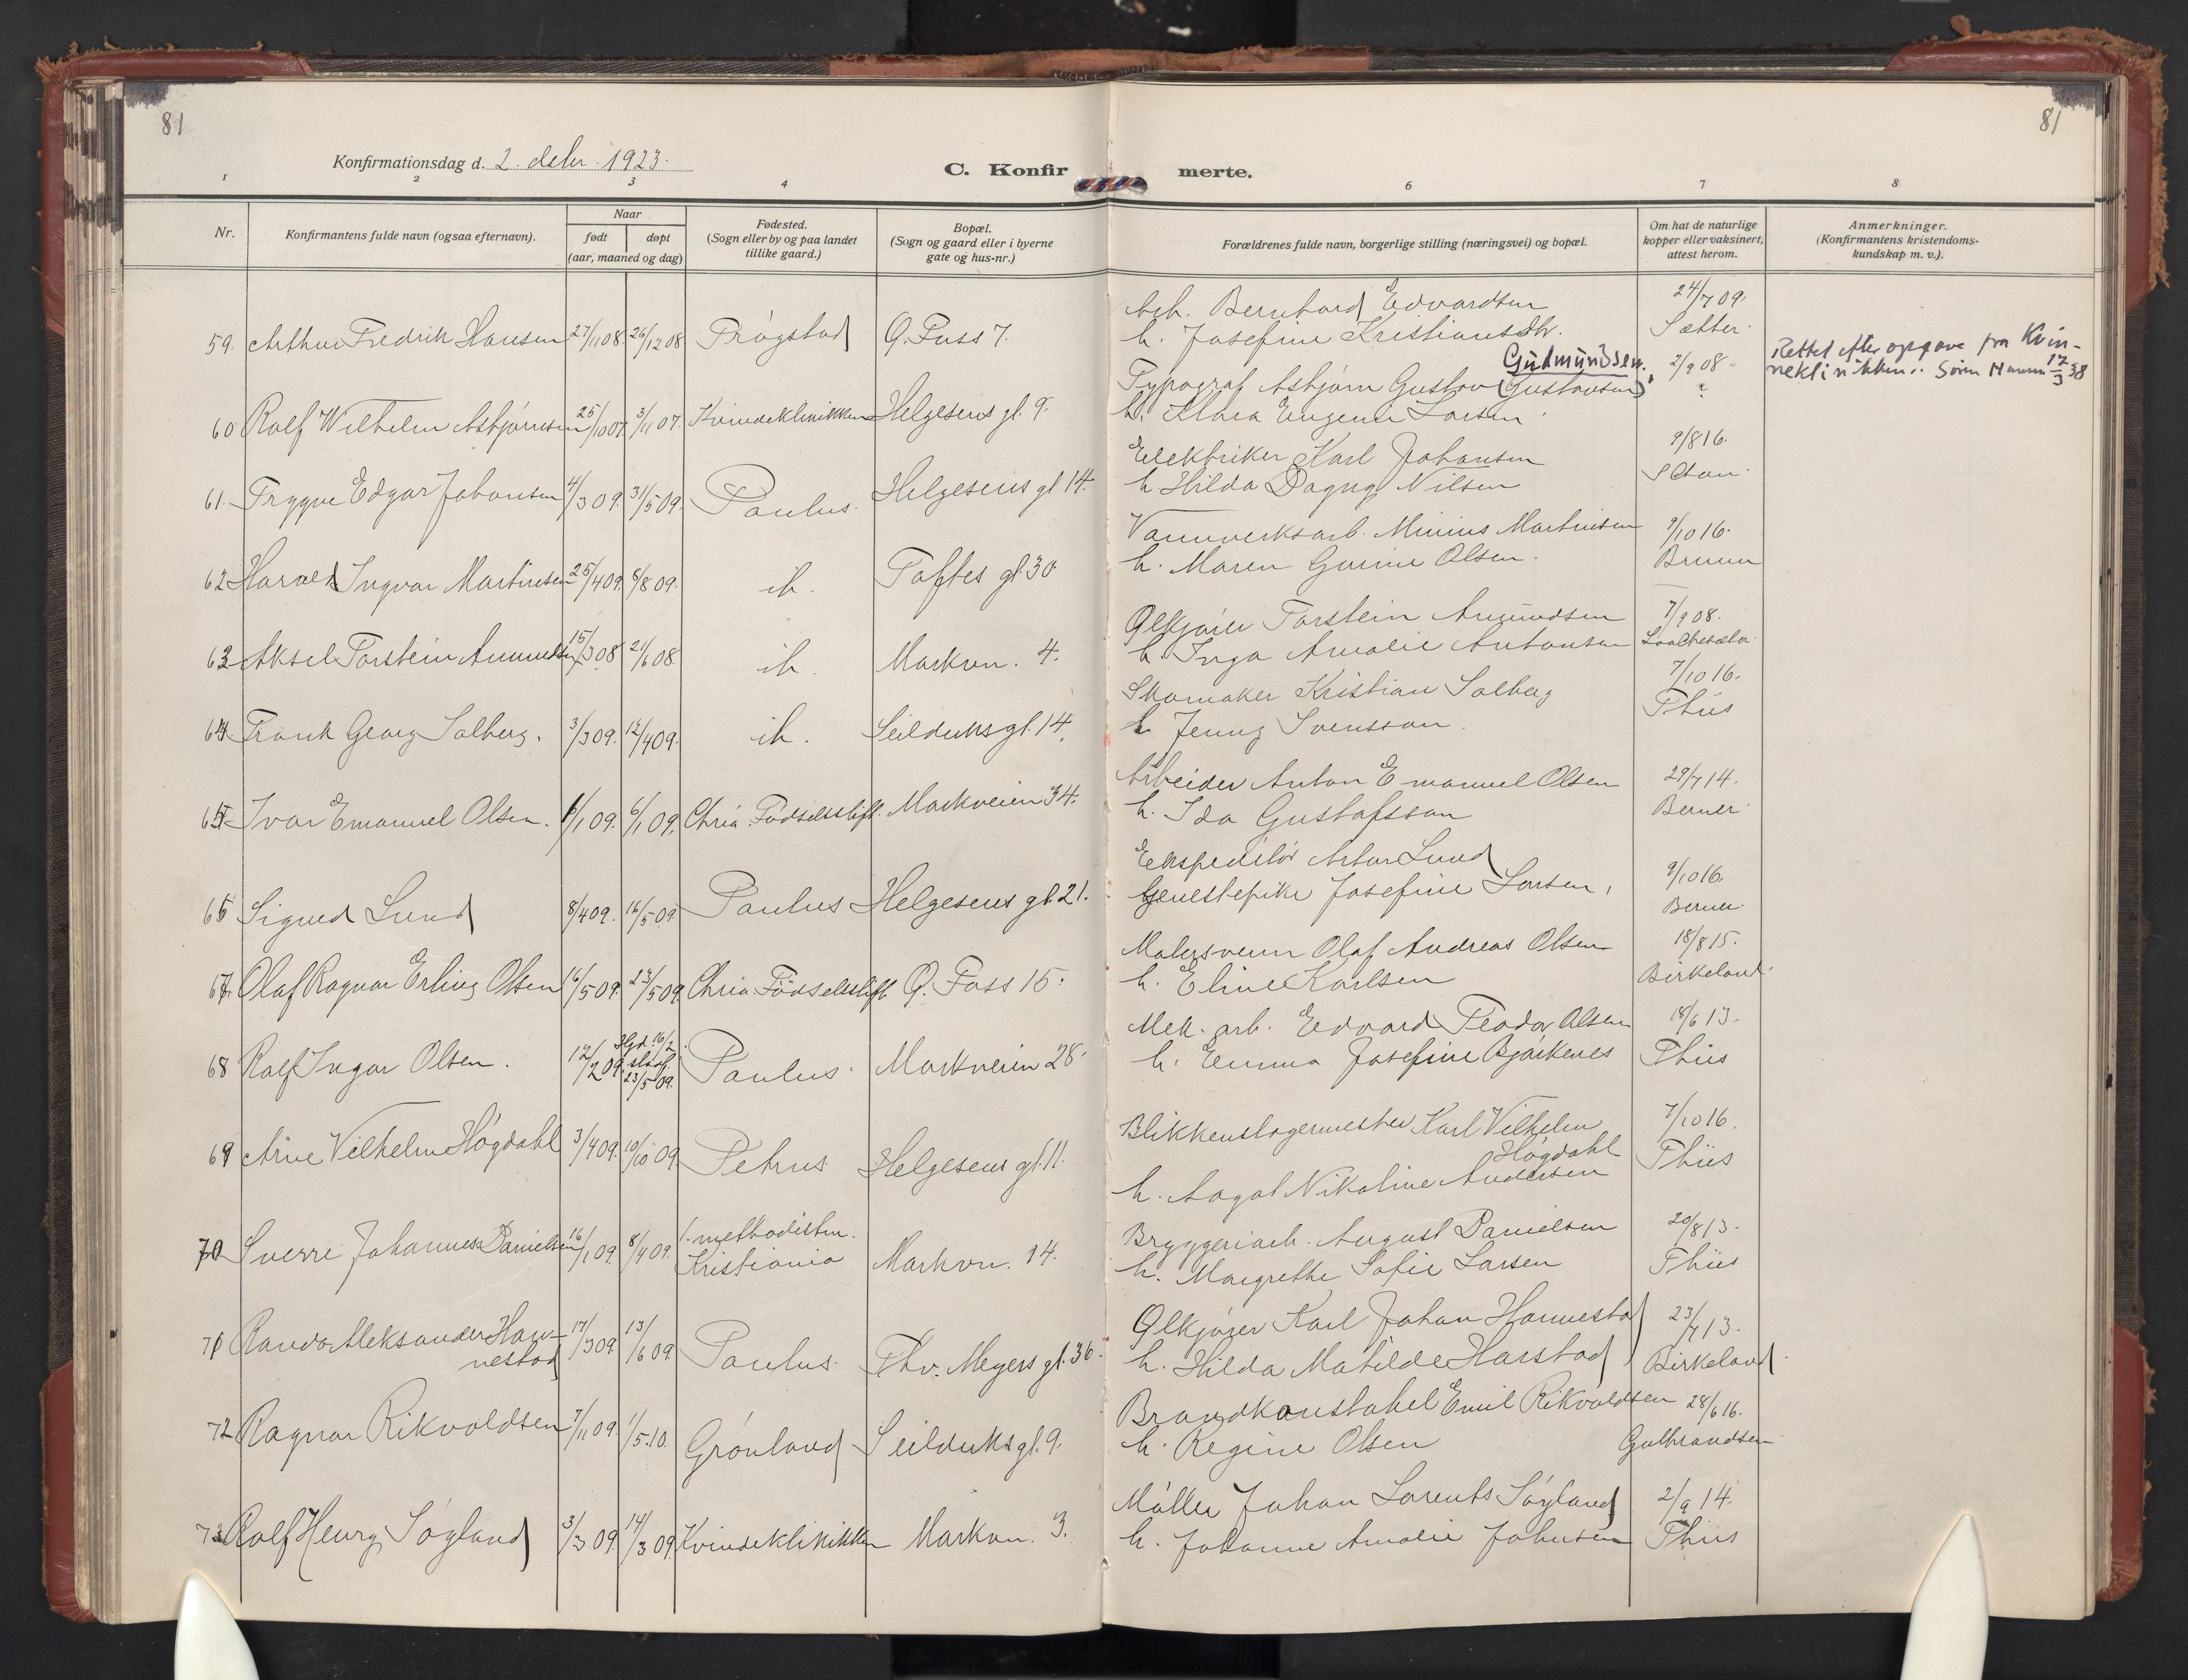 81
81
Konfirmationsdag d. 2. desbr. 1923.
C. Konfirmerte.
1 2 3 4 6 7 8
Nr.
Konfirmantens fulde navn (ogsaa efternavn).
Naar
født døpt
(aar, maaned og dag)
Fødested.
(Sogn eller by og paa landet
tillike gaard.)
Bopæl.
(Sogn og gaard eller i byerne
gate og hus-nr.)
Forældrenes fulde navn, borgerlige stilling (næringsvei) og bopæl.
Om hat de naturlige
kopper eller vaksinert,
attest herom.
Anmerkninger.
(Konfirmantens kristendoms-
kundskap m. v.).
Arb. Bernhard Edvardsen 24/7 09.
59. Arthur Fredrik Hansen 27/11 08. 26/12 08 Trøgstad Q. Foss 7. h. Josefine Kristiansdtr. Sætter.
Gudmundsen. Rettet efter opgave fra Kvin-
Typograf Asbjørn Gustav (Gustavsen) 2/9 08. neklinikken. 17/3 38
60 Rolf Wilhelm Asbjørnsen 25/10 07. 3/11 07. Kvindeklinikken Helgesens gt. 9. h. Klara Eugenie Larsen.
Elektriker Karl Johansen 9/8 16.
61. Trygve Edgar Johansen 4/3 09. 31/5 09. Paulus. Helgesens gt. 14. h. Hilda Dagny Nilsen
Vannverksarb. Minius Martinsen 9/10 16.
62 Harald Ingvar Martinsen 25/4 09. 8/8 09. ib. Toftes gt 30 h. Maren Gurine Olsen. Bruun
Ølkjører Torstein Amundsen 7/9 08.
63 Aksel Torstein Amundsen 15/3 08 21/6 08. ib. Markvn. 4. h. Inga Amalie Antonsen
Skomaker Kristian Solberg 7/10 16.
64. Frank Georg Solberg. 3/3 09. 12/4 09. ib. Seilduksgt. 14. h. Jenny Svensson. Thiis
Arbeider Anton Emanuel Olsen 29/7 14.
65. Ivar Emanuel Olsen. 6/1 09. 6/1 09. Chria. Fødselsstift. Markveien 34. h. Ida Gustafsson Berner.
Ekspeditør Artur Lund 9/10 16.
66 Sigurd Lund 8/4 09. 16/5 09. Paulus Helgesens gt. 21. Tjenestepike Josefine Larsen. Berner.
Malersvenn Olaf Andreas Olsen 18/8 15.
67. Olaf Ragnar Erling Olsen 16/5 09. 23/5 09. Chria. Fødselsstift Q. Foss 15. h. Eline Karlsen Birkeland.
Mek. arb. Edvard Teodor Olsen 18/6 13.
68 Rolf Ingar Olsen. 12/2 09. Hjd. 16/2. stadf. 23/5 09. Paulus. Markveien 28. h. Emma Josefine Bjørkenes Thiis
Blikkenslagermester Karl Vilhelm 7/10 16.
69 Arne Vilhelm Høgdahl 3/4 09. 10/10 09. Petrus. Helgesens gt. 11. Høgdahl Thiis
h. Aagot Nikoline Andersen
70 Sverre Johannes Danielsen 16/1 09. 8/4 09. 1. methodistm. Bryggeriarb. August Danielsen 20/8 13.
Kristiania Markvn. 14. h. Margrethe Sofie Larsen Thiis
71 Randor Aleksander Han- 17/3 09. 13/6 09. Ølkjører Karl Johan Hannestad 23/7 13.
nestad Paulus. Thv. Meyers gt. 36. h. Hilda Matilde Harstad Birkeland.
Brandkonstabel Emil Rikvoldsen 28/6 16.
72 Ragnar Rikvoldsen 7/11 09. 1/5.10. Grønland Seilduksgt. 9. h. Regine Olsen Gulbrandsen
Møller Johan Lorents Søyland 2/9 14.
73. Rolf Henry Søyland 3/3 09. 14/3 09. Kvindeklinikken Markvn. 3. h. Johanne Amalie Johnsen Thiis